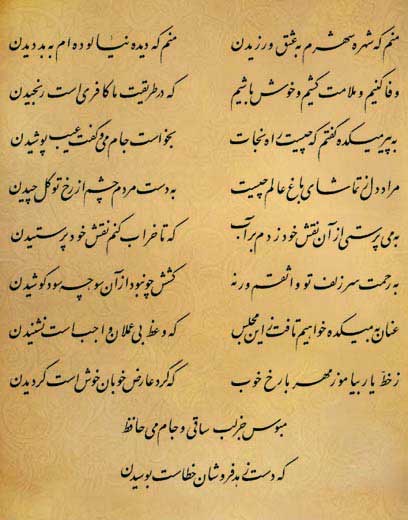 منم که شهره شهرم به عشق ورزیدن منم که دیده نیالوده ام به بد دیدن
وفا کنیم و ملامت کشیم و خوش باشیم که در طریقت ما کافری است رنجیدن
به پیر میکده گفتم که چیست راه نجات بخواست جام می و گفت عیب پوشیدن
مراد دل ز تماشای باغ عالم چیست به دست مردم چشم از رخ تو گل چیدن
به می پرستی از آن نقش خود زدم بر آب که تا خراب کنم نقش خود پرستیدن
به رحمت سر زلف تو واثقم ور نه کشش چو نبود از آن سو چه سود کوشیدن
عنان به میکده خواهیم تافت زین مجلس که وعظ بی عملان واجب است نشنیدن
ز خط یار بیاموز مهر با رخ خوب که گرد عارض خوبان خوش است گردیدن
مبوس جز لب ساقی و جام می حافظ
که دست زهد فروشان خطاست بوسیدن